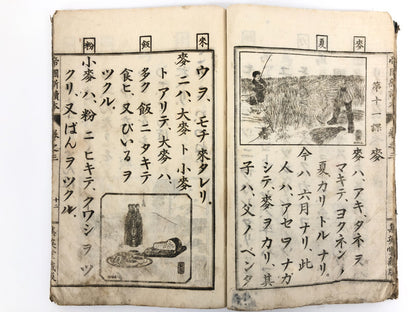 麥
夏
第十一課 麥
麥ハ、アキ、タネヲ
マキテ、ヨクネンノ
夏カリトルナリ。
今ハ六月ナリ。此
人ハ、アセヲナガ
シテ、麥ヲカリ、其
子ハ、父ノベンタ
來
飯
粉
ウヲ、モチ來タレリ。
麥ニハ、大麥ト小麥
トアリテ、大麥ハ、
多ク飯ニタキテ
食ヒ、又びいるヲ
ツクル。
小麥ハ、粉ニヒキテ、クワシヲツ
クリ、又ぱんヲツクル。